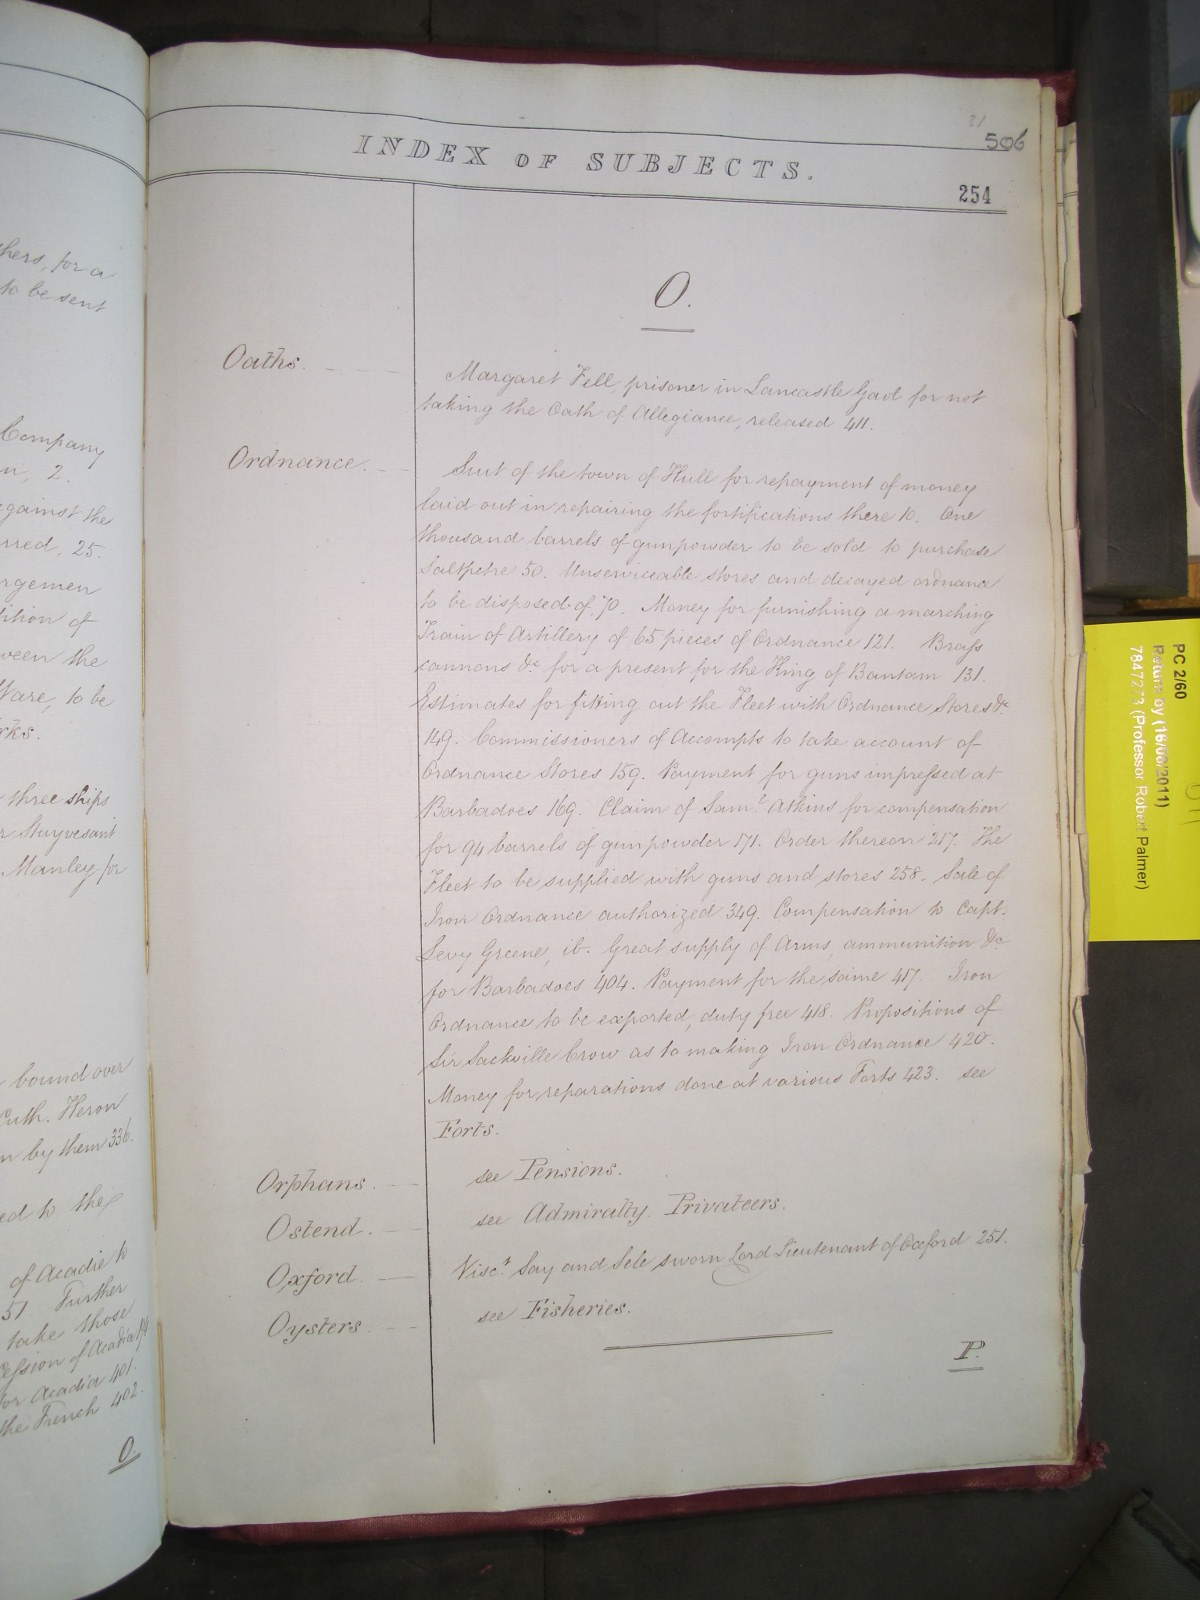 hers, for a
to be sent
Company
n, 2.
against the
rred, 25.
rgemen
ition of
ween the
Ware, to be
rks.
three ships
r Stuyvesant
Manley for
bound over
Cuth. Heron
n by them 336.
ed to the
of Acadie to
57. Further
take those
cession of Acadia
for Acadia 401.
the French 402.
O.
506
INDEX OF SUBJECTS.
254
O.
Oaths.
Margaret Fell, prisoner in Lancastle Gaol for not
taking the Oath of Allegiance, released 411.
Ordnance.
Suit of the town of Hull for repayment of money
laid out in repairing the fortifications there 10. One
thousand barrels of gunpowder to be sold to purchase
Saltpetre 50. Unserviceable stores and decayed ordnance
to be disposed of, 70. Money for furnishing a marching
Train of Artillery of 65 pieces of Ordnance 121. Brass
cannons &c for a present for the King of Bantam 131.
Estimates for fitting out the Fleet with Ordnance Stores &c
149. Commissioners of Accompts to take account of
Ordnance Stores 159. Payment for guns impressed at
Barbadoes 169. Claim of Saml. Atkins for compensation
for 94 barrels of gunpowder 171. Order thereon 217. The
Fleet to be supplied with guns and stores 258. Sale of
Iron Ordnance authorized 349. Compensation to Capt.
Levy Greene, ib. Great supply of Arms, ammunition &c
for Barbadoes 404. Payment for the same 417. Iron
Ordnance to be exported, duty free 418. Propositions of
Sir Sackville Crow as to making Iron Ordnance 420.
Money for reparations done at various Forts 423. see
Forts.
Orphans. see Pensions.
Ostend. see Admiralty. Privateers.
Oxford. Visct. Say and Sele sworn Lord Lieutenant of Oxford 251.
Oysters see Fisheries.
P.
PC 2/60
Return by (16/08/2011)
7847273 (Professor Robert Palmer)